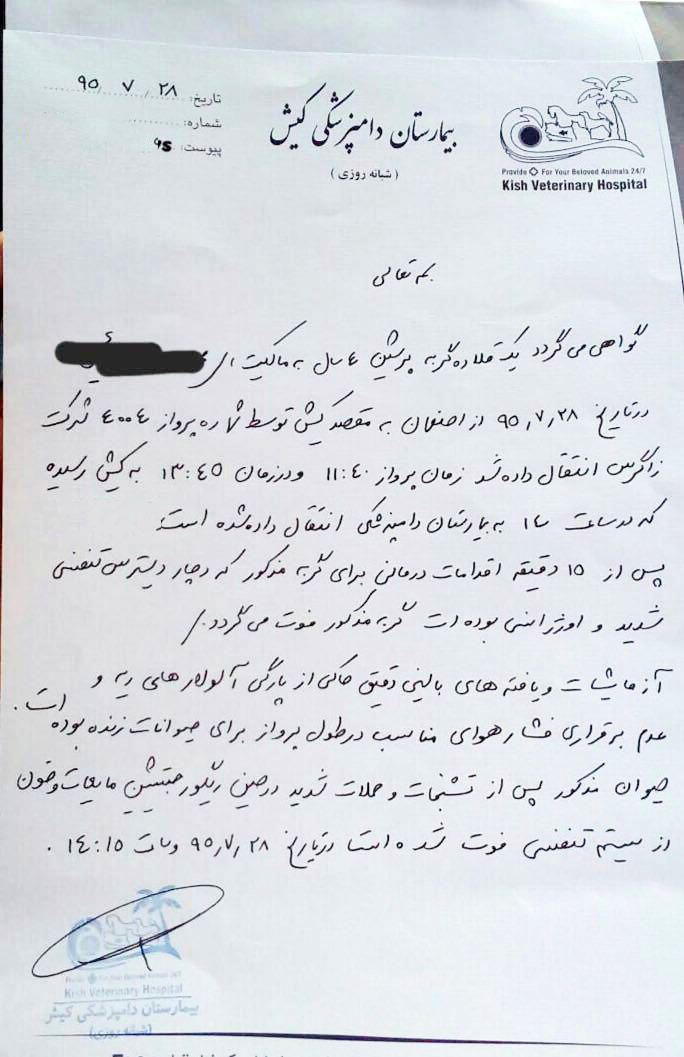 تاریخ: ۹۵/۷/۲۸
شماره:
پیوست:
بیمارستان دامپزشکی کیش
(شبانه روزی)
Provide For Your Beloved Animals 24/7
Kish Veterinary Hospital
بسمه تعالی
گواهی می گردد یک قلاده گربه پرشین ۴ ساله به مالکیت
در تاریخ ۹۵/۷/۲۸ از اصفهان به مقصد کیش توسط شماره پرواز ۴۰۰۴ شرکت
زاگرس انتقال داده شد زمان پرواز ۱۱:۴۰ و در زمان ۱۳:۴۵ به کیش رسیده
که در ساعت ۱۴ به بیمارستان دامپزشکی انتقال داده شده است.
پس از ۱۵ دقیقه اقدامات درمانی برای گربه مذکور که دچار دیسترس تنفسی
شدید و اورژانسی بوده است گربه مذکور فوت می گردد./
آزمایشات و یافته های بالینی دقیق حاکی از پارگی آلوئولهای ریه و
عدم برقراری فشار هوای مناسب در طول پرواز برای حیوانات زنده بوده است.
حیوان مذکور پس از تشنجات و حملات شدید در حین ریگورجیتیشن مایعات و خون
از سیستم تنفسی فوت شده است در تاریخ ۹۵/۷/۲۸ و ساعت ۱۴:۱۵.
Kish Veterinary Hospital
بیمارستان دامپزشکی کیش
(شبانه روزی)